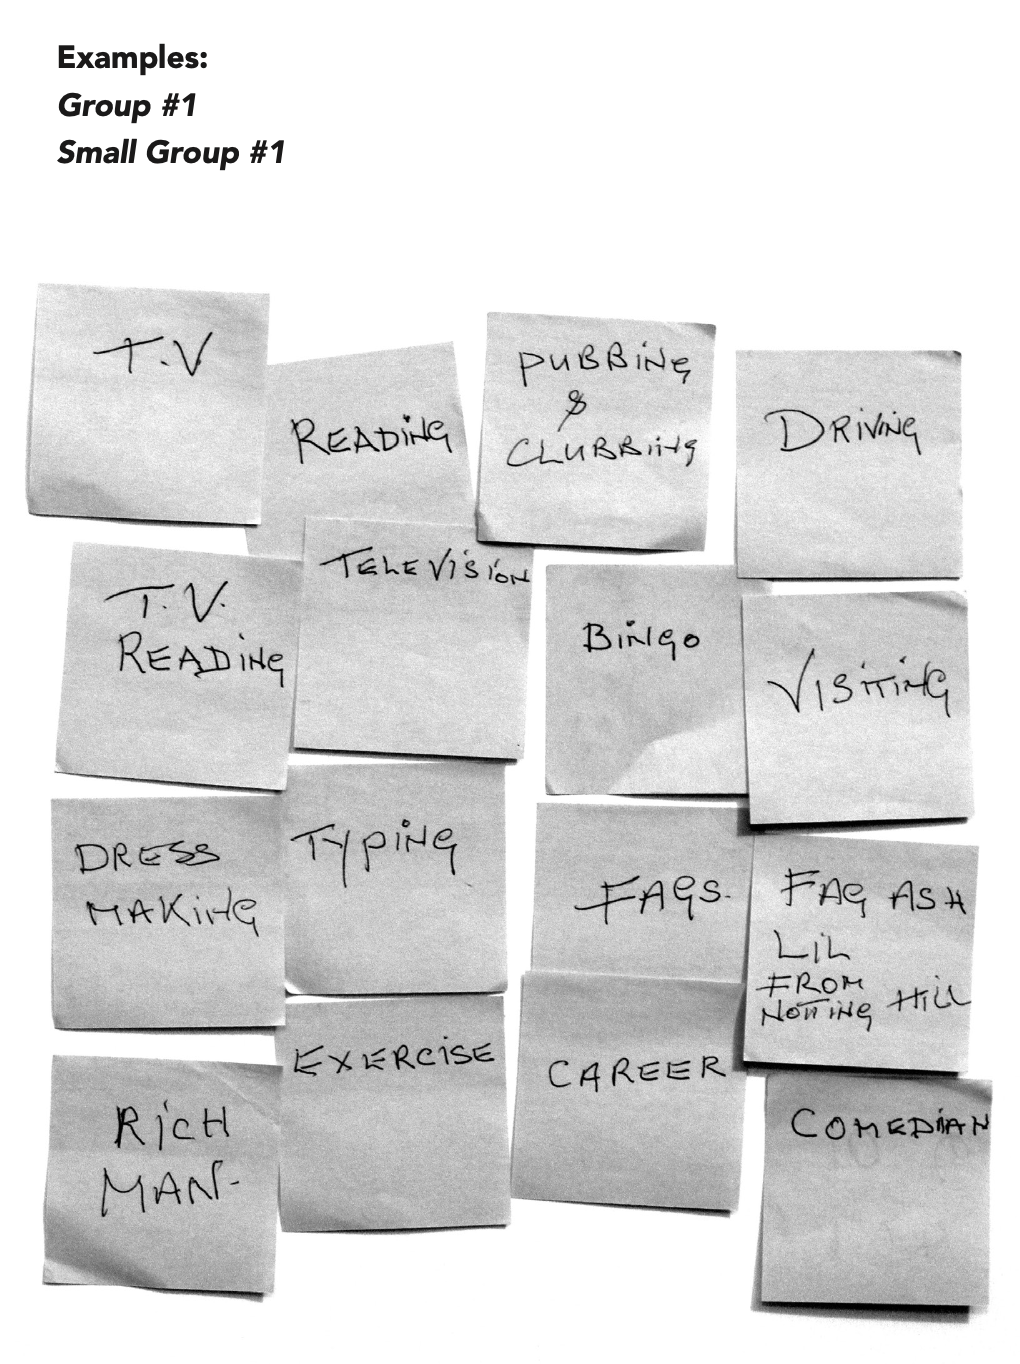 Examples:
Group #1
Small Group #1
T.V
READING
PUBBING
&
CLUBBING
DRIVING
T.V.
READING
TELEVISION
BINGO
VISITING
DRESS
MAKING
TYPING
FAGS.
FAG ASH
LIL
FROM
NOTTING HILL
RICH
MAN-
EXERCISE
CAREER
COMEDIAN